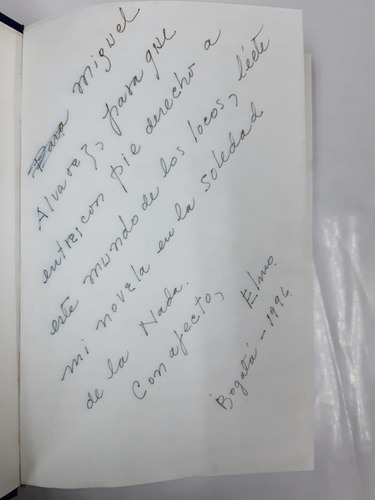 Para Miguel
Alvarez, para que
entres con pie derecho a
este mundo de los locos, léete
mi novela en la soledad
de la Nada.
Con afecto,
Elmo.
Bogotá - 1996